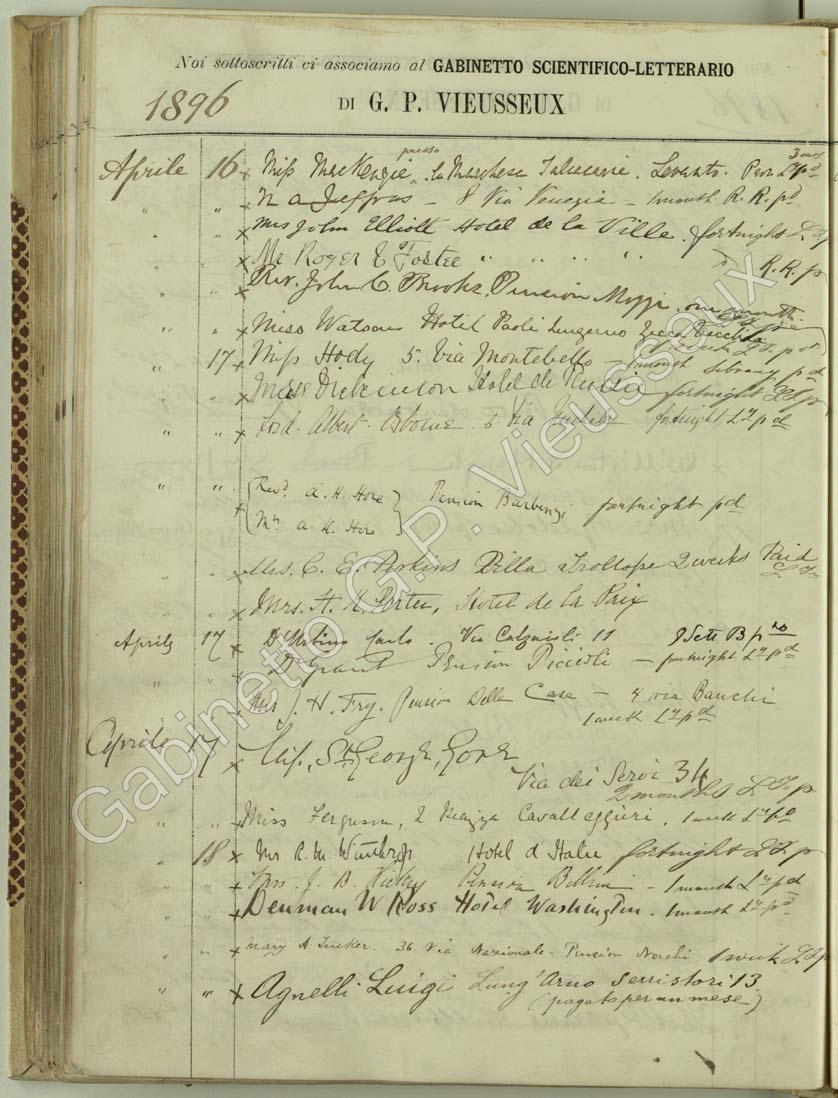 Noi sottoscritti ci associamo al GABINETTO SCIENTIFICO-LETTERARIO
1896 DI G. P. VIEUSSEUX
Aprile 16 x Miss MacKenzie presso la Marchesa Levanto. 3 mos pd
" " x 8 Via Venezia - 1 month R. R. pd
" " x Mrs John Elliott Hotel de la Ville. fortnight
" " x Mr Roger Foster " " " " R. R. p
" " x Rev. John C. Brooks. Pension Mozzi. one month
" " x Miss Watson Hotel Paoli Lungarno Zecca Vecchia
" 17 x Miss Hody 5. Via Montebello - 1 month Library pd
" " x Miss Dickinson Hotel de Russie fortnight
" " x Lord Albert Osborne 6 Via fortnight Ly pd
" " x Revd. A. H. Hore
Mrs A. H. Hore Pension Barbensi fortnight pd
" " x Mrs. C. E. Perkins Villa Trollope 2 weeks Paid
" " x Mrs. H. K. Porter, Hotel de la Paix
Aprile 17 x D'Urbino Carlo. Via Calzaioli 11
" " x Grant Pension Piccioli - fortnight Ly pd
" " x Mrs J. H. Fry. Pension Della Casa - 4 via Banchi
1 week Ly pd
Aprile 17 x Miss St George Gore
Via dei Servi 34
2 months
" " x Miss Ferguson, 2 Piazza Cavalleggieri, 1 week Ly pd
18 x Mr R. M. Winthrop Hotel d Italie fortnight
" " x Mrs. J. B. Pension Bellini - 1 month Ly pd
" " x Denman W Ross Hotel Washington. 1 month Ly pd.
" " x Mary A Tucker. 36 Via Nazionale. Pension 1 week
" " x Agnelli Luigi Lung'Arno Serristori 13
(pagato per un mese)
Gabinetto G.P. Vieusseux